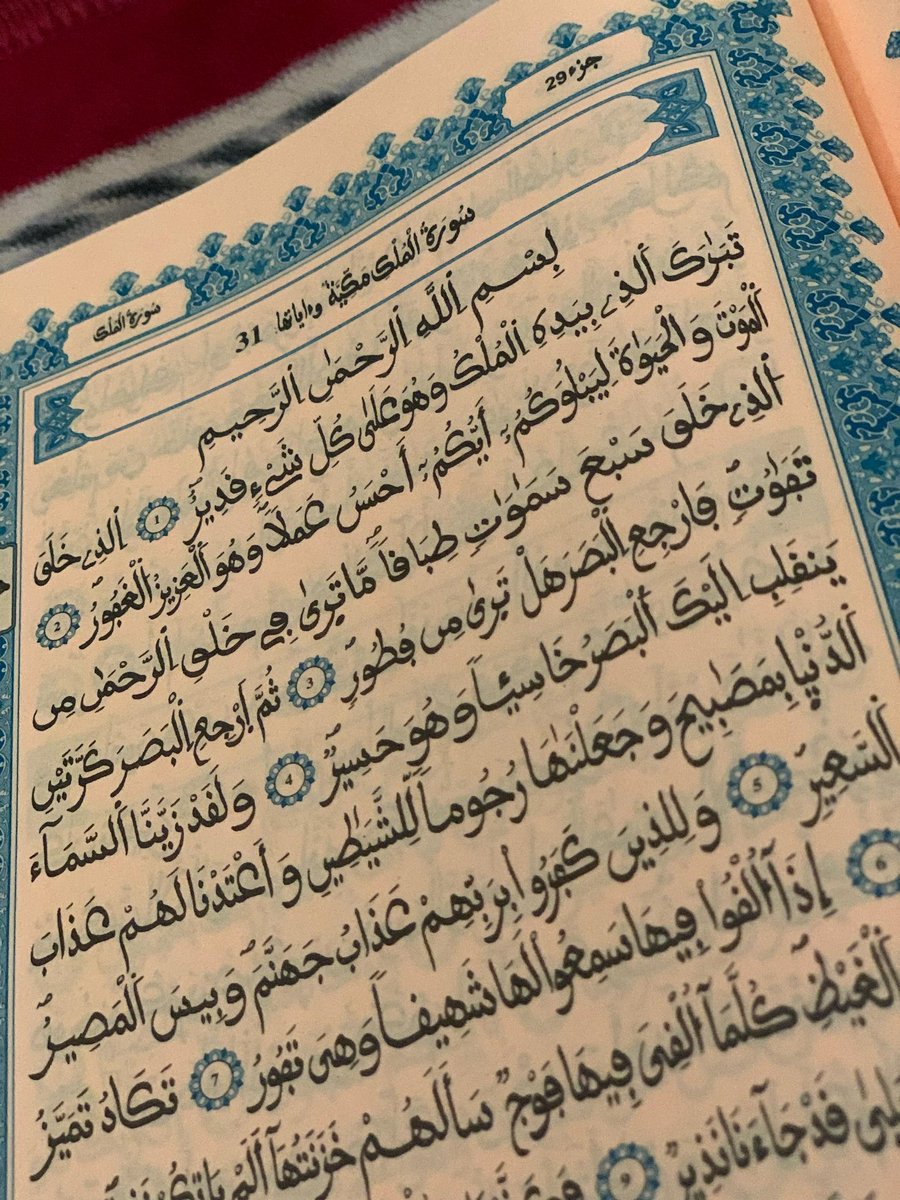 جزء 29
سُورَةُ الْمُلْك
سُورَةُ الْمُلْك مَكِّيَّةٌ وءاياتها 31
بِسْمِ اِ۬للَّهِ اِ۬لرَّحْمَٰنِ اِ۬لرَّحِيمِ
تَبَٰرَكَ اَ۬لذِے بِيَدِهِ اِ۬لْمُلْكُ وَهُوَ عَلَىٰ كُلِّ شَےْءٖ قَدِيرٌ 1 اِ۬لذِے خَلَقَ
اَ۬لْمَوْتَ وَالْحَيَوٰةَ لِيَبْلُوَكُمُۥٓ أَيُّكُمُۥٓ أَحْسَنُ عَمَلاٗ وَهُوَ اَ۬لْعَزِيزُ اُ۬لْغَفُورُ 2
اُ۬لذِے خَلَقَ سَبْعَ سَمَٰوَٰتٖ طِبَاقاٗ مَّا تَرَىٰ فِے خَلْقِ اِ۬لرَّحْمَٰنِ مِن
تَفَٰوُتٖ فَارْجِعِ اِ۬لْبَصَرَ هَلْ تَرَىٰ مِن فُطُورٖ 3 ثُمَّ اَ۪رْجِعِ اِ۬لْبَصَرَ كَرَّتَيْنِ
يَنقَلِبِ اِلَيْكَ اَ۬لْبَصَرُ خَاسِئاٗ وَهُوَ حَسِيرٌ 4 وَلَقَدْ زَيَّنَّا اَ۬لسَّمَآءَ
اَ۬لدُّنْيَا بِمَصَٰبِيحَ وَجَعَلْنَٰهَا رُجُوماٗ لِّلشَّيَٰطِينِ وَأَعْتَدْنَا لَهُمْ عَذَابَ
اَ۬لسَّعِيرِ 5 وَلِلذِينَ كَفَرُواْ بِرَبِّهِمْ عَذَابُ جَهَنَّمَ وَبِيسَ اَ۬لْمَصِيرُ 6
إِذَآ أُلْقُواْ فِيهَا سَمِعُواْ لَهَا شَهِيقاٗ وَهِىَ تَفُورُ 7 تَكَادُ تَمَيَّزُ
اَ۬لْغَيْظِ كُلَّمَآ أُلْقِىَ فِيهَا فَوْجٞ سَأَلَهُمْ خَزَنَتُهَآ أَلَمْ يَاتِكُمْ
بَلَىٰ قَدْ جَآءَنَا نَذِيرٞ 9